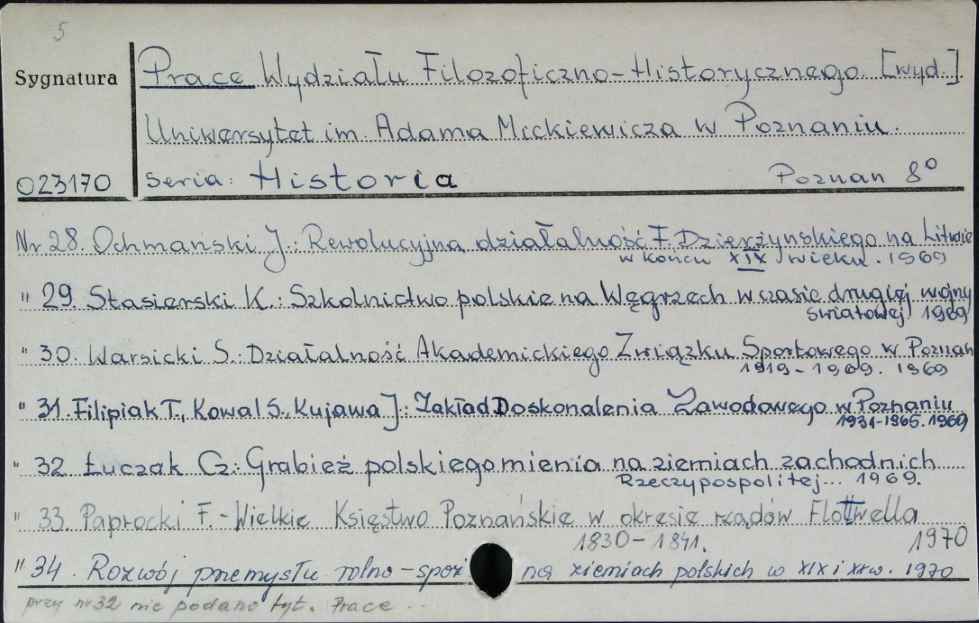 5
Sygnatura
Prace Wydziału Filozoficzno-Historycznego. [wyd.].
Uniwersytet im. Adama Mickiewicza w Poznaniu.
023170
Seria: Historia Poznan 8°
Nr 28. Ochmanski J.: Rewolucyjna działalność F. Dzierżynskiego na Litwie
w końcu XIX wieku. 1969
" 29. Stasierski K.: Szkolnictwo polskie na Węgrzech w czasie drugiej wojny
światowej 1969
" 30. Warsicki S.: Działalność Akademickiego Związku Sportowego w Poznań
1919-1969. 1969
" 31. Filipiak T., Kowal S., Kujawa J.: Zakład Doskonalenia Zawodowego w Poznaniu
1931-1965. 1969
" 32 Łuczak Cz.: Grabież polskiego mienia na ziemiach zachodnich
Rzeczypospolitej... 1969.
" 33. Paprocki F. - Wielkie Księstwo Poznańskie w okresie rządów Flottwella
1830-1841. 1970
" 34. Rozwój przemysłu rolno-spoż na ziemiach polskich w XIX i XX w. 1970
przy nr 32 nie podano tyt. Prace ...